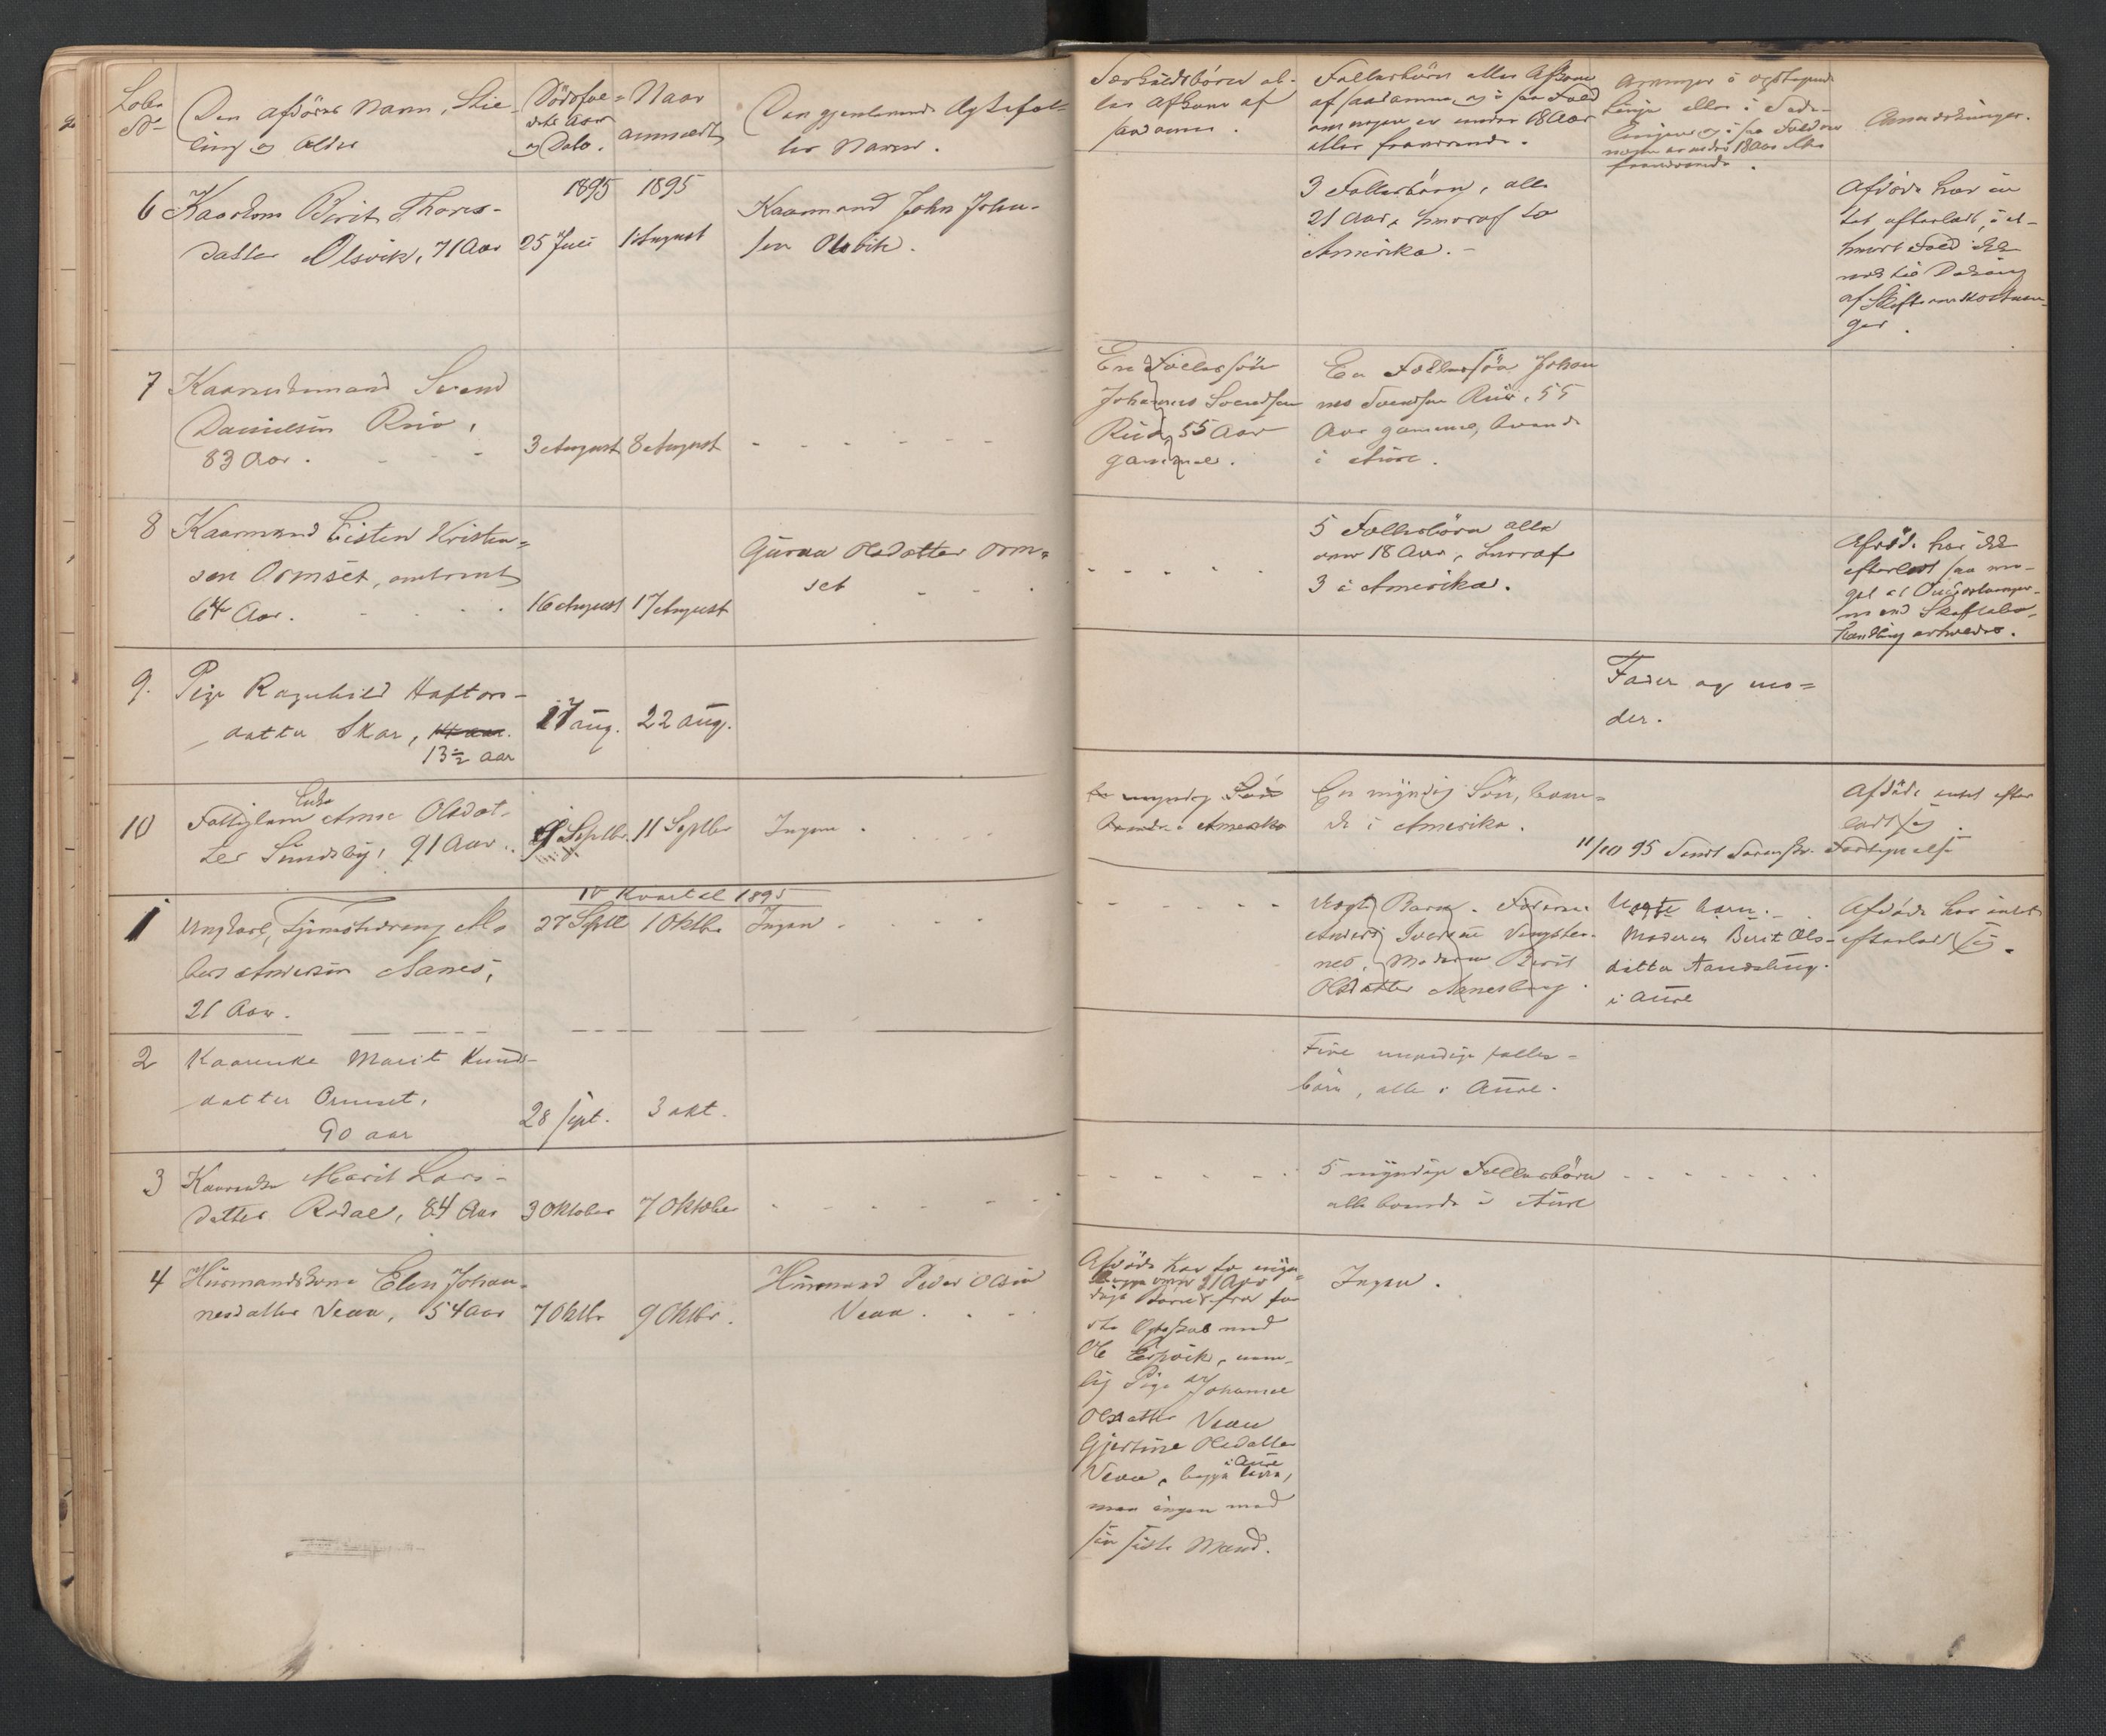 Løbe No
Den afdødes Navn, Stilling og Alder
Dødsfaldets Aar og Dato.
Naar anmeldt
Den gjenlevende Ægtefælles Navn.
Særkuldsbørn eller Afkom af saadanne.
Fællesbørn eller Afkom
af saadanne, og i saa Fald
om nogen er under 18 Aar
eller fraværende.
Arvinger i opstigende
Linje eller i Sidelinjen og i saa Fald om
nogen er under 18 Aar eller
fraværende.
Anmærkninger.
6 Kaarkone Berit Thores-
datter Olsvik, 71 Aar
1895
25 Juli
1895
1 August
Kaarmand John John-
sen Olsvik.
3 Fællesbørn, alle
21 Aar, hvoraf to
i Amerika. -
Afdøde har in-
tet efterladt, i et-
hvert Fald ikke
nok til Dækning
af Skifteomkostnin-
ger.
7 Svend
Danielsen
83 Aar.
3 August 8 August
En Fællessøn
Johannes Svendsen
55 Aar
gammel.
En Fællessøn Johan
nes Svendsen 55
Aar gammel, boende
i Aure.
8 Kaarmand Eisten Kristen=
sen Ormset, omtrent
64 Aar.
16 August 17 August
Guraa Olsdatter Orm=
set
5 Fællesbørn alle
over 18 Aar, hvoraf
3 i Amerika.
Afdøde har ikke
efterladt saa me-
get at
Skiftebe-
handling
9. Pige Ragnhild Haftors-
datter Skar, 14 aar.
13½ aar
17 aug. 22 aug.
Fader og mo=
der.
10 Fattiglem Enke Anne Olsdat-
ter Sundsby, 91 Aar.
9 Septbr. 11 Septbr
Ingen.
En myndig Søn
boende i Amerika
En myndig Søn, boen=
de i Amerika.
Afdøde intet efter
ladt sig.
11/10 95 Sendt Sorenskr. Fortegnelse
IV Kvartal 1895
1 Ungkarl, Tjenestedreng
Andersen Aanes,
21 Aar.
27 Septb 1 Oktbr Ingen
Uegte Barn. Faderen
Anders
nes, Moderen Berit
Olsdatter
Uegte barn.
Moderen Berit Ols-
datter
i Aure
Afdøde har intet
efterladt sig.
2 Kaarenke Marit Knuds-
datter Ormset,
90 aar
28 sept. 3 okt.
Fire myndige fælles-
børn, alle i Aure.
3 Kaarenke Marit Lars-
datter Rodal, 84 Aar
3 Oktober 7 Oktober
5 myndige Fællesbørn
alle boende i Aure
4 Husmandskone Elen Johan-
nesdatter Veaa, 54 Aar
7 Oktbr 9 Oktbr.
Husmand Peder Olsen
Veaa.
Afdøde har to myn-
begge over 21 Aar
dige Børn fra før-
ste Ægteskab med
Ole Espvik, nem-
lig Pige Johanne
Olsdatter Veaa
Gjertine Olsdatter
Veaa, begge i Aure,
men ingen med
sin sidste Mand.
Ingen.